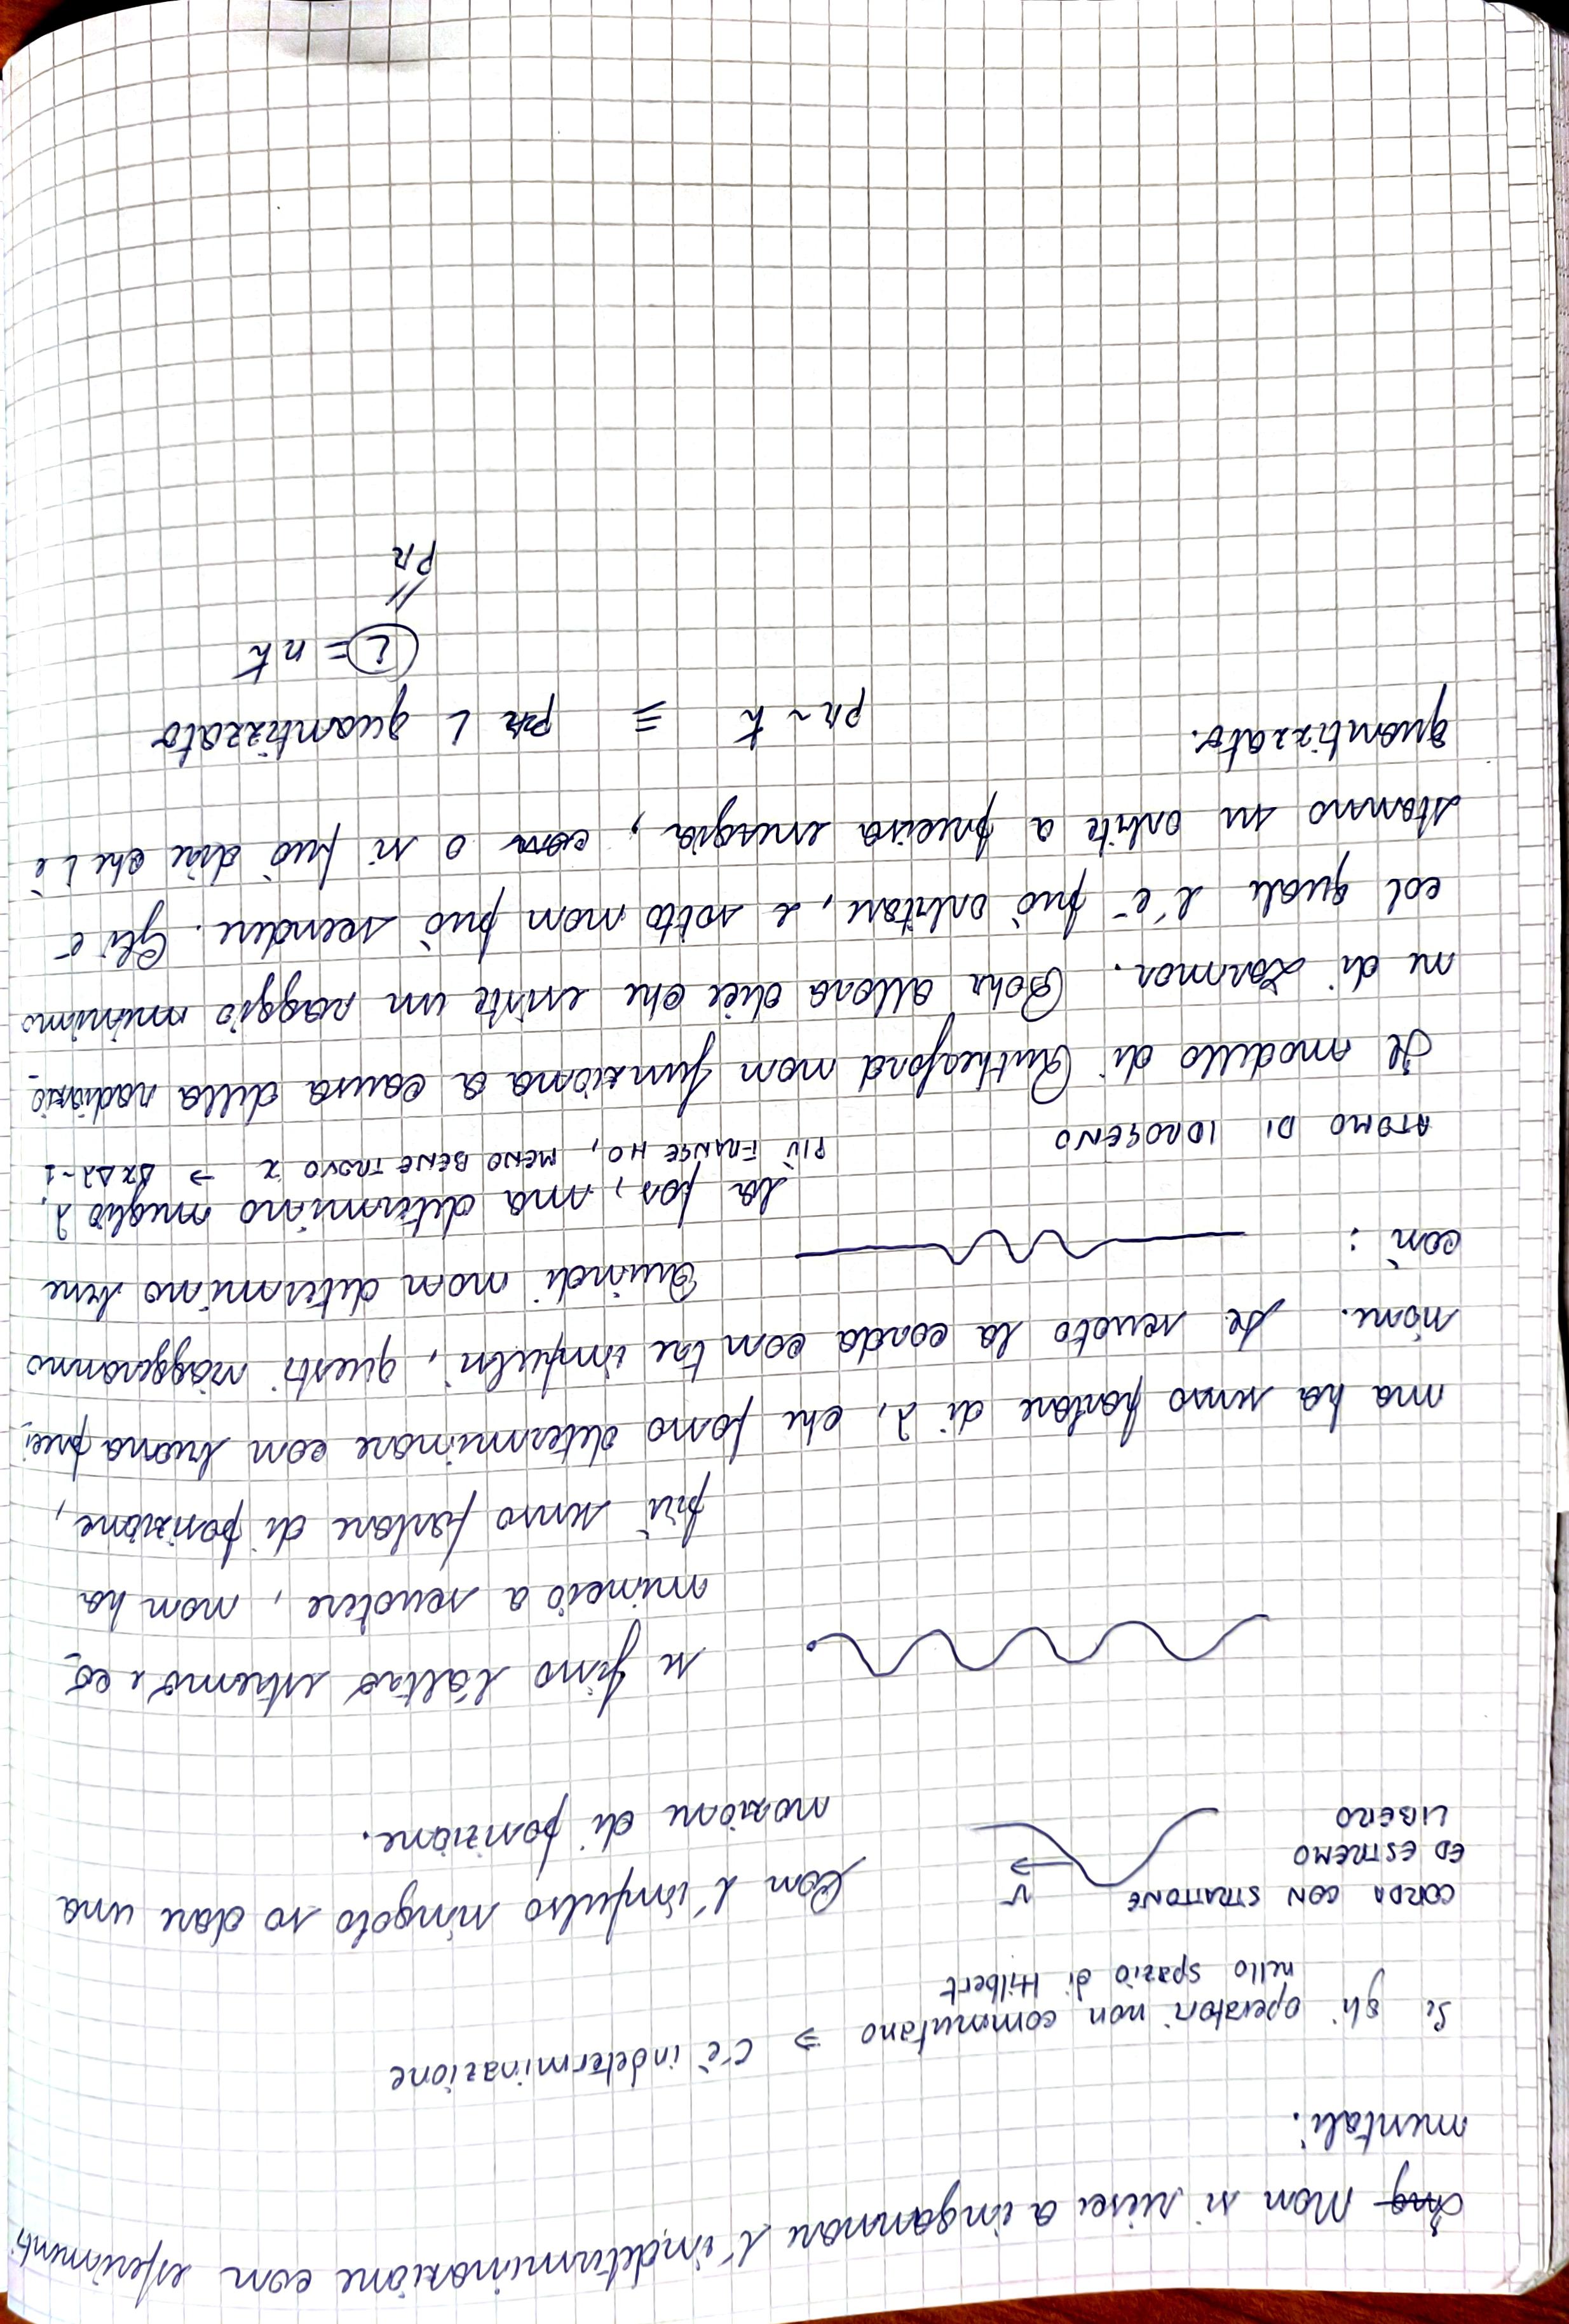 Non si riesce a ingannare l'indeterminazione con esperimenti
mentali.
Se gli operatori non commutano ⇒ c'è indeterminazione
nello spazio di Hilbert
CORDA CON STRATTONE
ED ESTREMO
LIBERO
v
Con l'impulso singolo so dare una
nozione di posizione.
se fisso l'altro estremo e co-
mincio a scuotere, non ha
più senso parlare di posizione,
ma ha senso parlare di λ, che posso determinare con buona preci-
sione. Se scuoto la corda con tre impulsi, questi viaggeranno
così:
Quindi non determino bene
la pos, ma determino meglio λ.
PIÙ FRANGE HO, MENO BENE TROVO x → Δx Δλ ~ 1
ATOMO DI IDROGENO
Il modello di Rutherford non funziona a causa della radiazio-
ne di Larmor. Bohr allora dice che esiste un raggio minimo
col quale l'e⁻ può orbitare, e sotto non può scendere. Gli e⁻
stanno su orbite a precisa energia, o si può dire che L è
quantizzato.
pr ~ ħ ≡ L quantizzato
L = nħ
//
pr